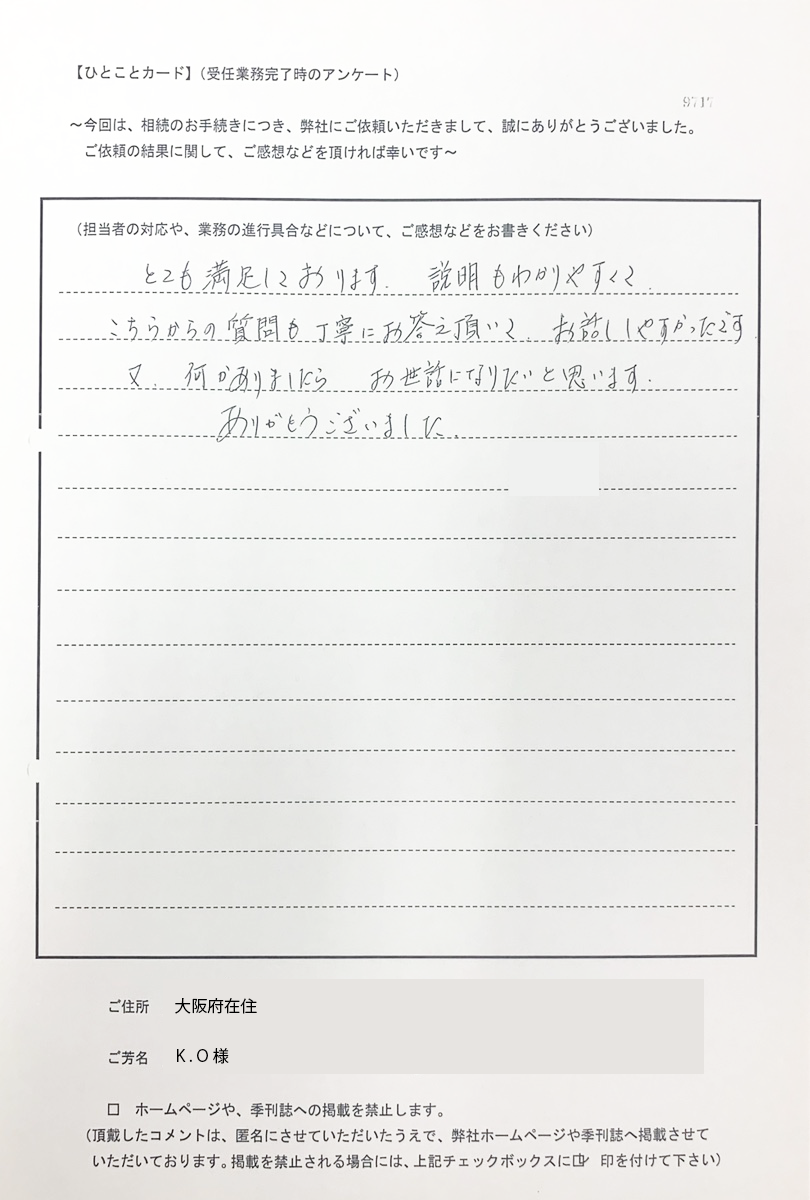 【ひとことカード】（受任業務完了時のアンケート）
9717
～今回は、相続のお手続きにつき、弊社にご依頼いただきまして、誠にありがとうございました。
ご依頼の結果に関して、ご感想などを頂ければ幸いです～
（担当者の対応や、業務の進行具合などについて、ご感想などをお書きください）
とても満足しております. 説明もわかりやすくて.
こちらからの質問も丁寧にお答え頂いて、お話ししやすかったです
又、何かありましたら お世話になりたいと思います.
ありがとうございました.
ご住所 大阪府在住
ご芳名 K.O様
□ ホームページや、季刊誌への掲載を禁止します。
（頂戴したコメントは、匿名にさせていただいたうえで、弊社ホームページや季刊誌へ掲載させて
いただいております。掲載を禁止される場合には、上記チェックボックスに☑ 印を付けて下さい）